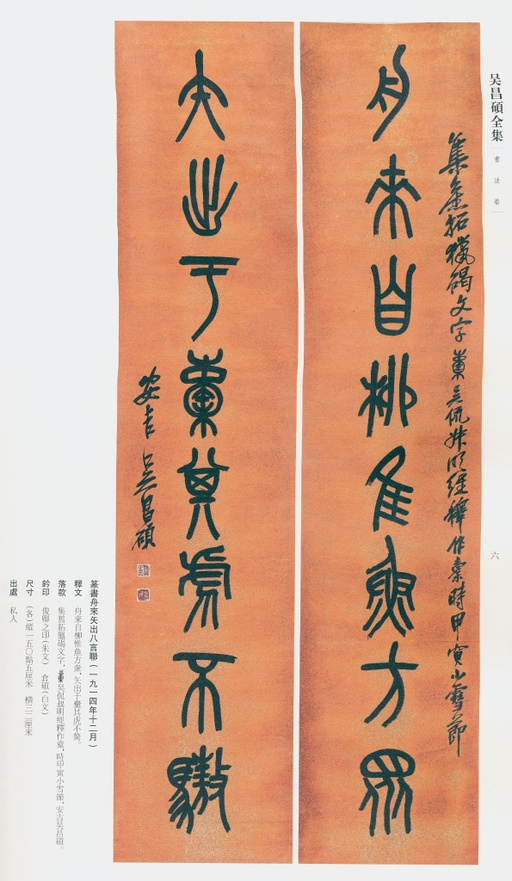 吴昌碩全集
書法卷
六
舟來自柳惟魚方眾
集舊拓獵碣文字 㯱吴侃叔明經釋作橐 時甲寅小雪節
矢出于㯱其虎不驚
安吉吴昌碩
篆書舟來矢出八言聯（一九一四年十二月）
釋文 舟來自柳惟魚方眾，矢出于
落款 集舊拓獵碣文字，
吴侃叔明經釋作橐，時甲寅小雪節，安吉吴昌碩。
鈐印 俊卿之印（朱文） 倉碩（白文）
尺寸 （各）縱一五〇點五厘米 橫三二厘米
出處 私人